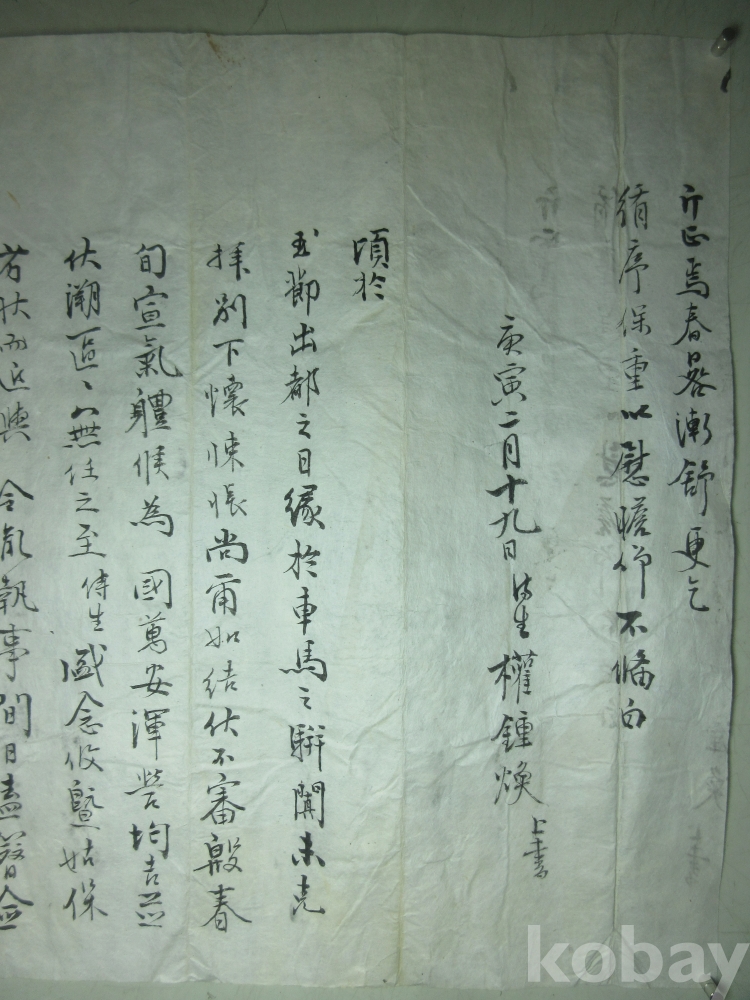 斤正焉春晷漸舒更乞
循序保重以慰瞻仰不備白
庚寅二月十九日 侍生 權鍾煥 上書
頃於
玉節出都之日緣於車馬之騈闐未克
拜別下懷悚悵尚爾如結伏不審殷春
旬宣氣體候為 國萬安渾營均吉並
伏溯區〻無任之至 侍生 盛念攸曁姑保
若狀而近與 令胤執事間日盍簪僉
kobay